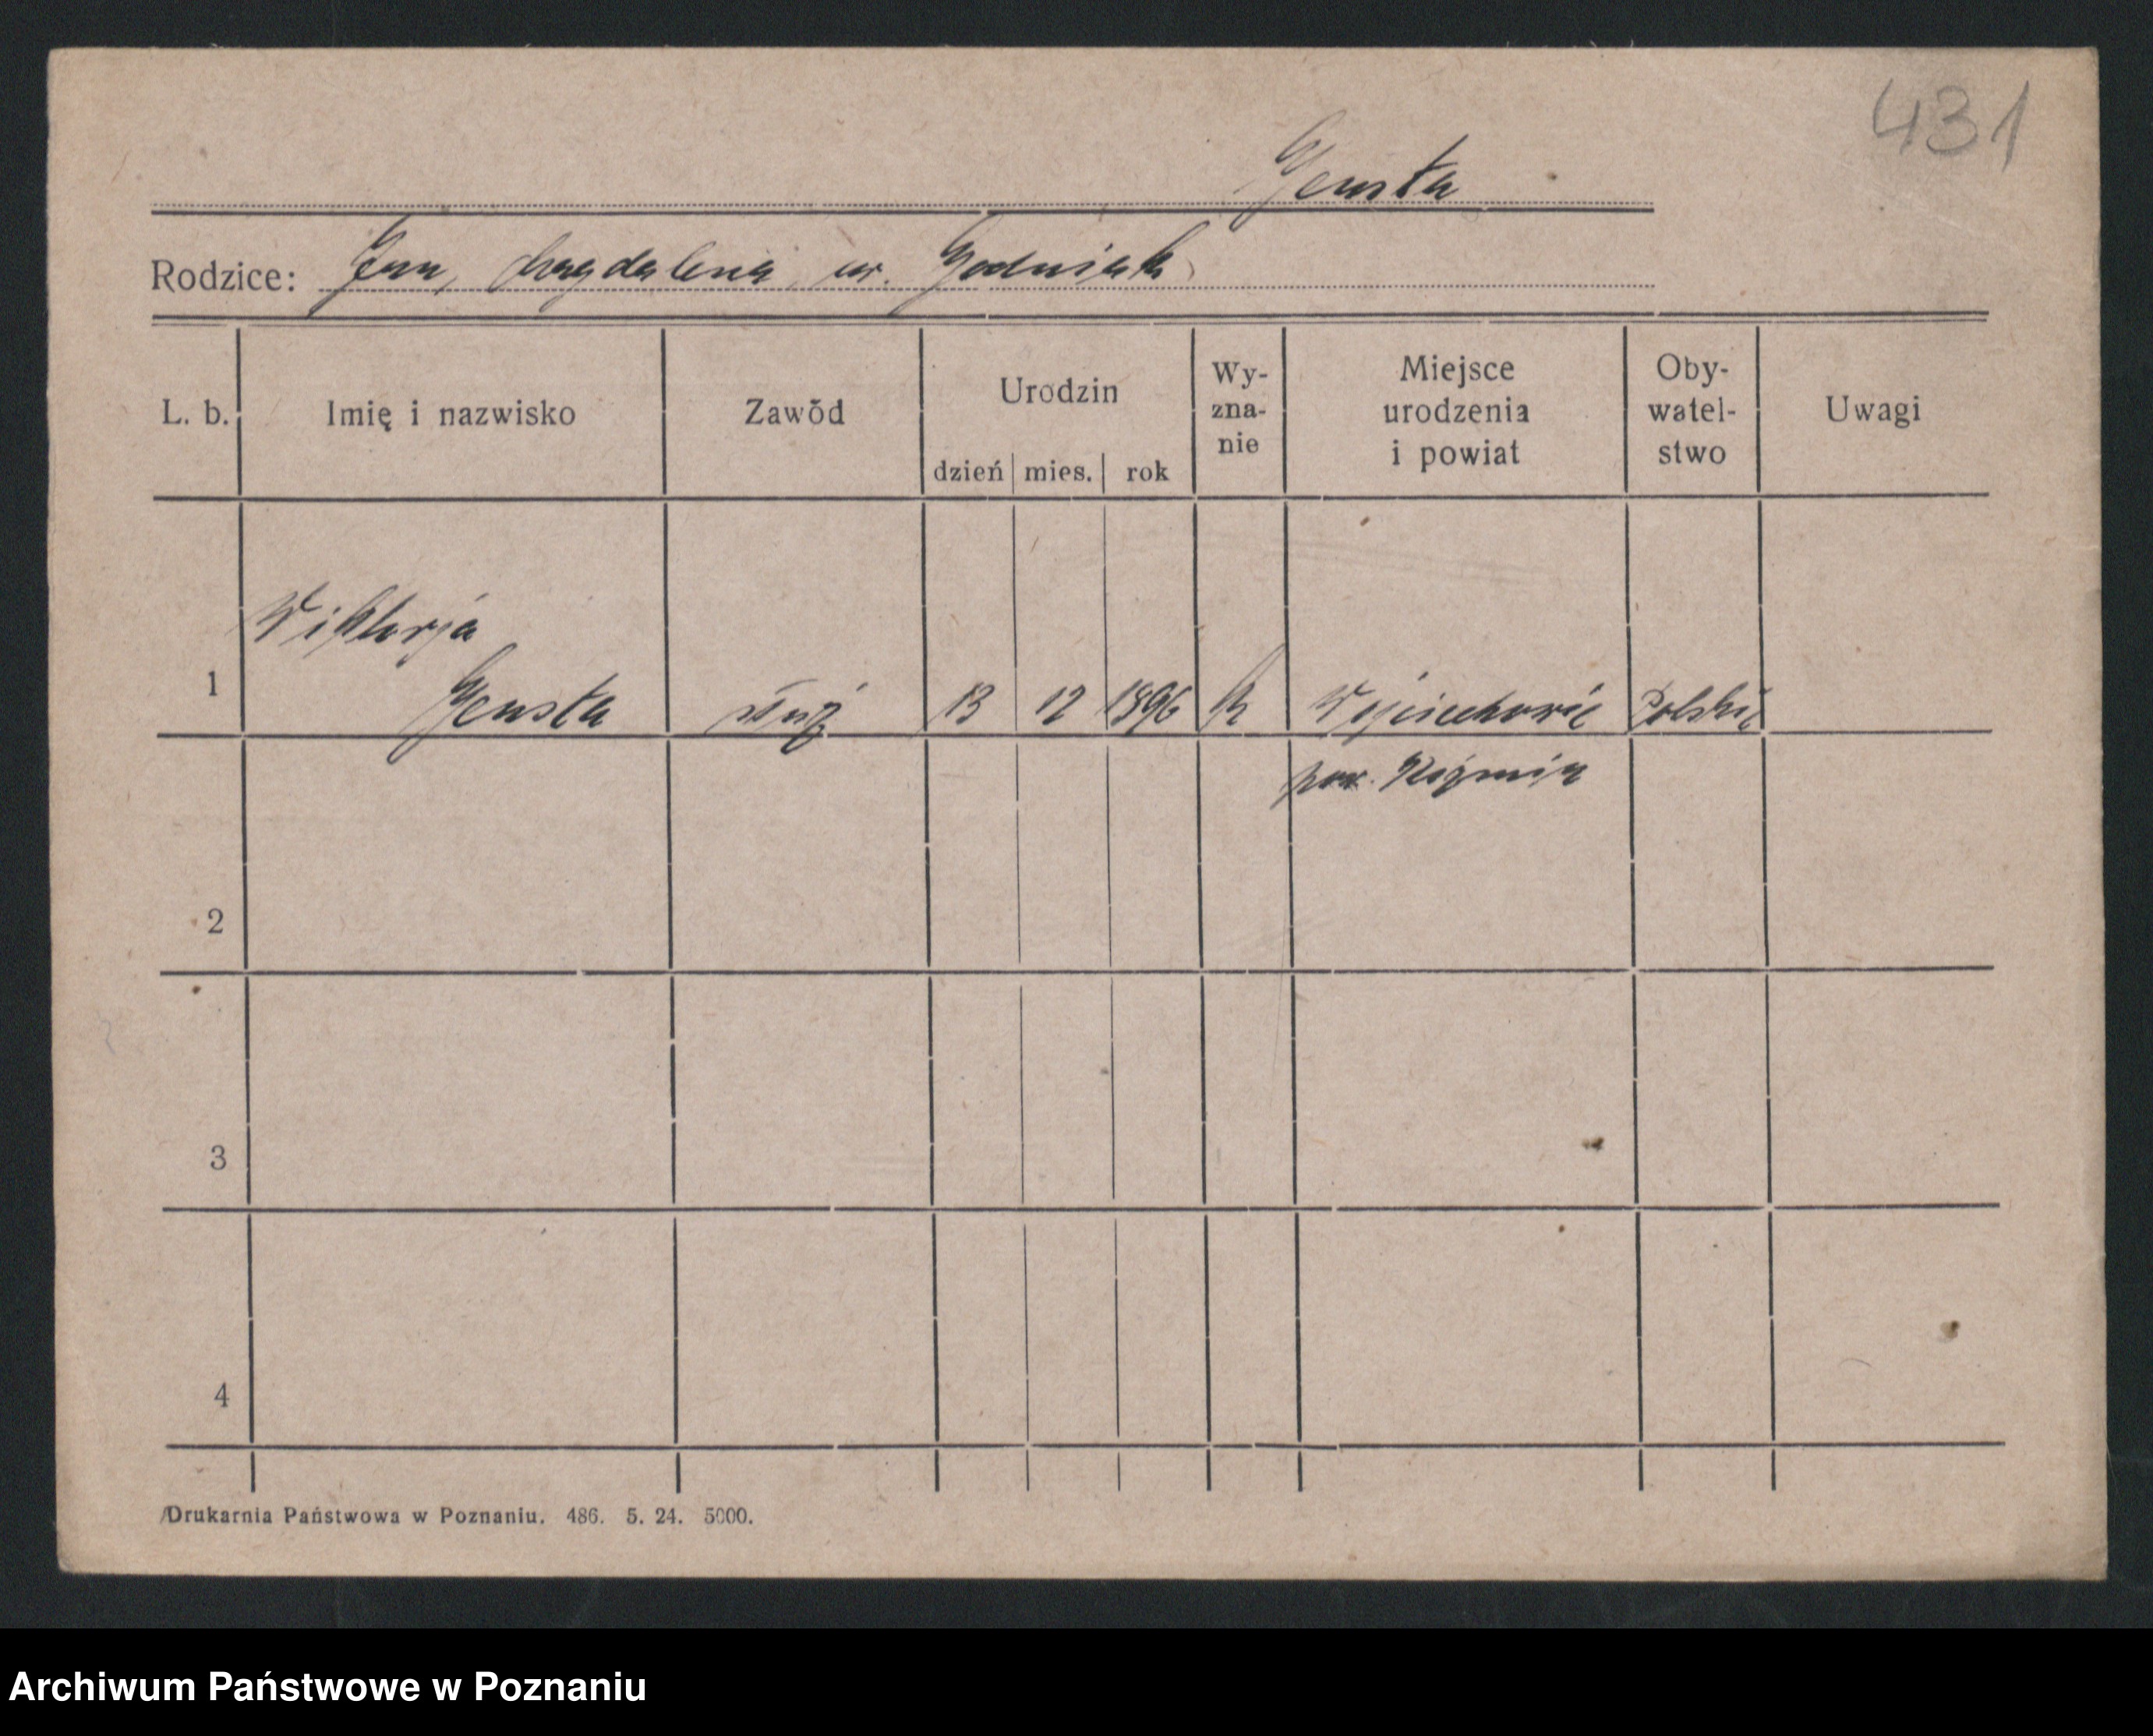 431
Gensta
Rodzice: Jan, Magdalena, ur. Godniak
L. b. Imię i nazwisko Zawód Urodzin dzień mies. rok Wy-zna-nie Miejsce urodzenia i powiat Oby-watel-stwo Uwagi
Wiktorja
1 Gensta służ 13 12 1896 k Polskie
pow. Koźmin
2
3
4
Drukarnia Państwowa w Poznaniu. 486. 5. 24. 5000.
Archiwum Państwowe w Poznaniu